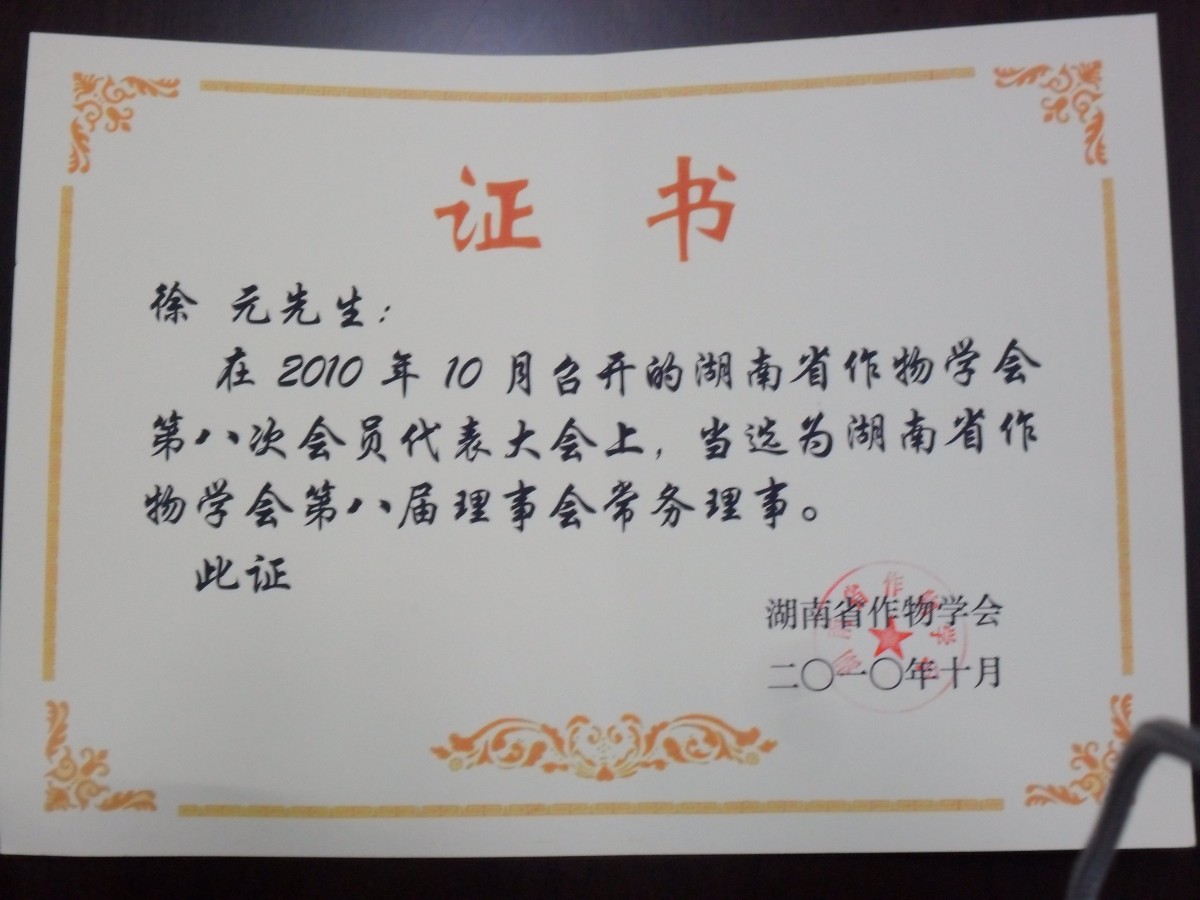 证 书
徐 元先生：
在 2010 年 10 月召开的湖南省作物学会
第八次会员代表大会上，当选为湖南省作
物学会第八届理事会常务理事。
此证
湖南省作物学会
二〇一〇年十月